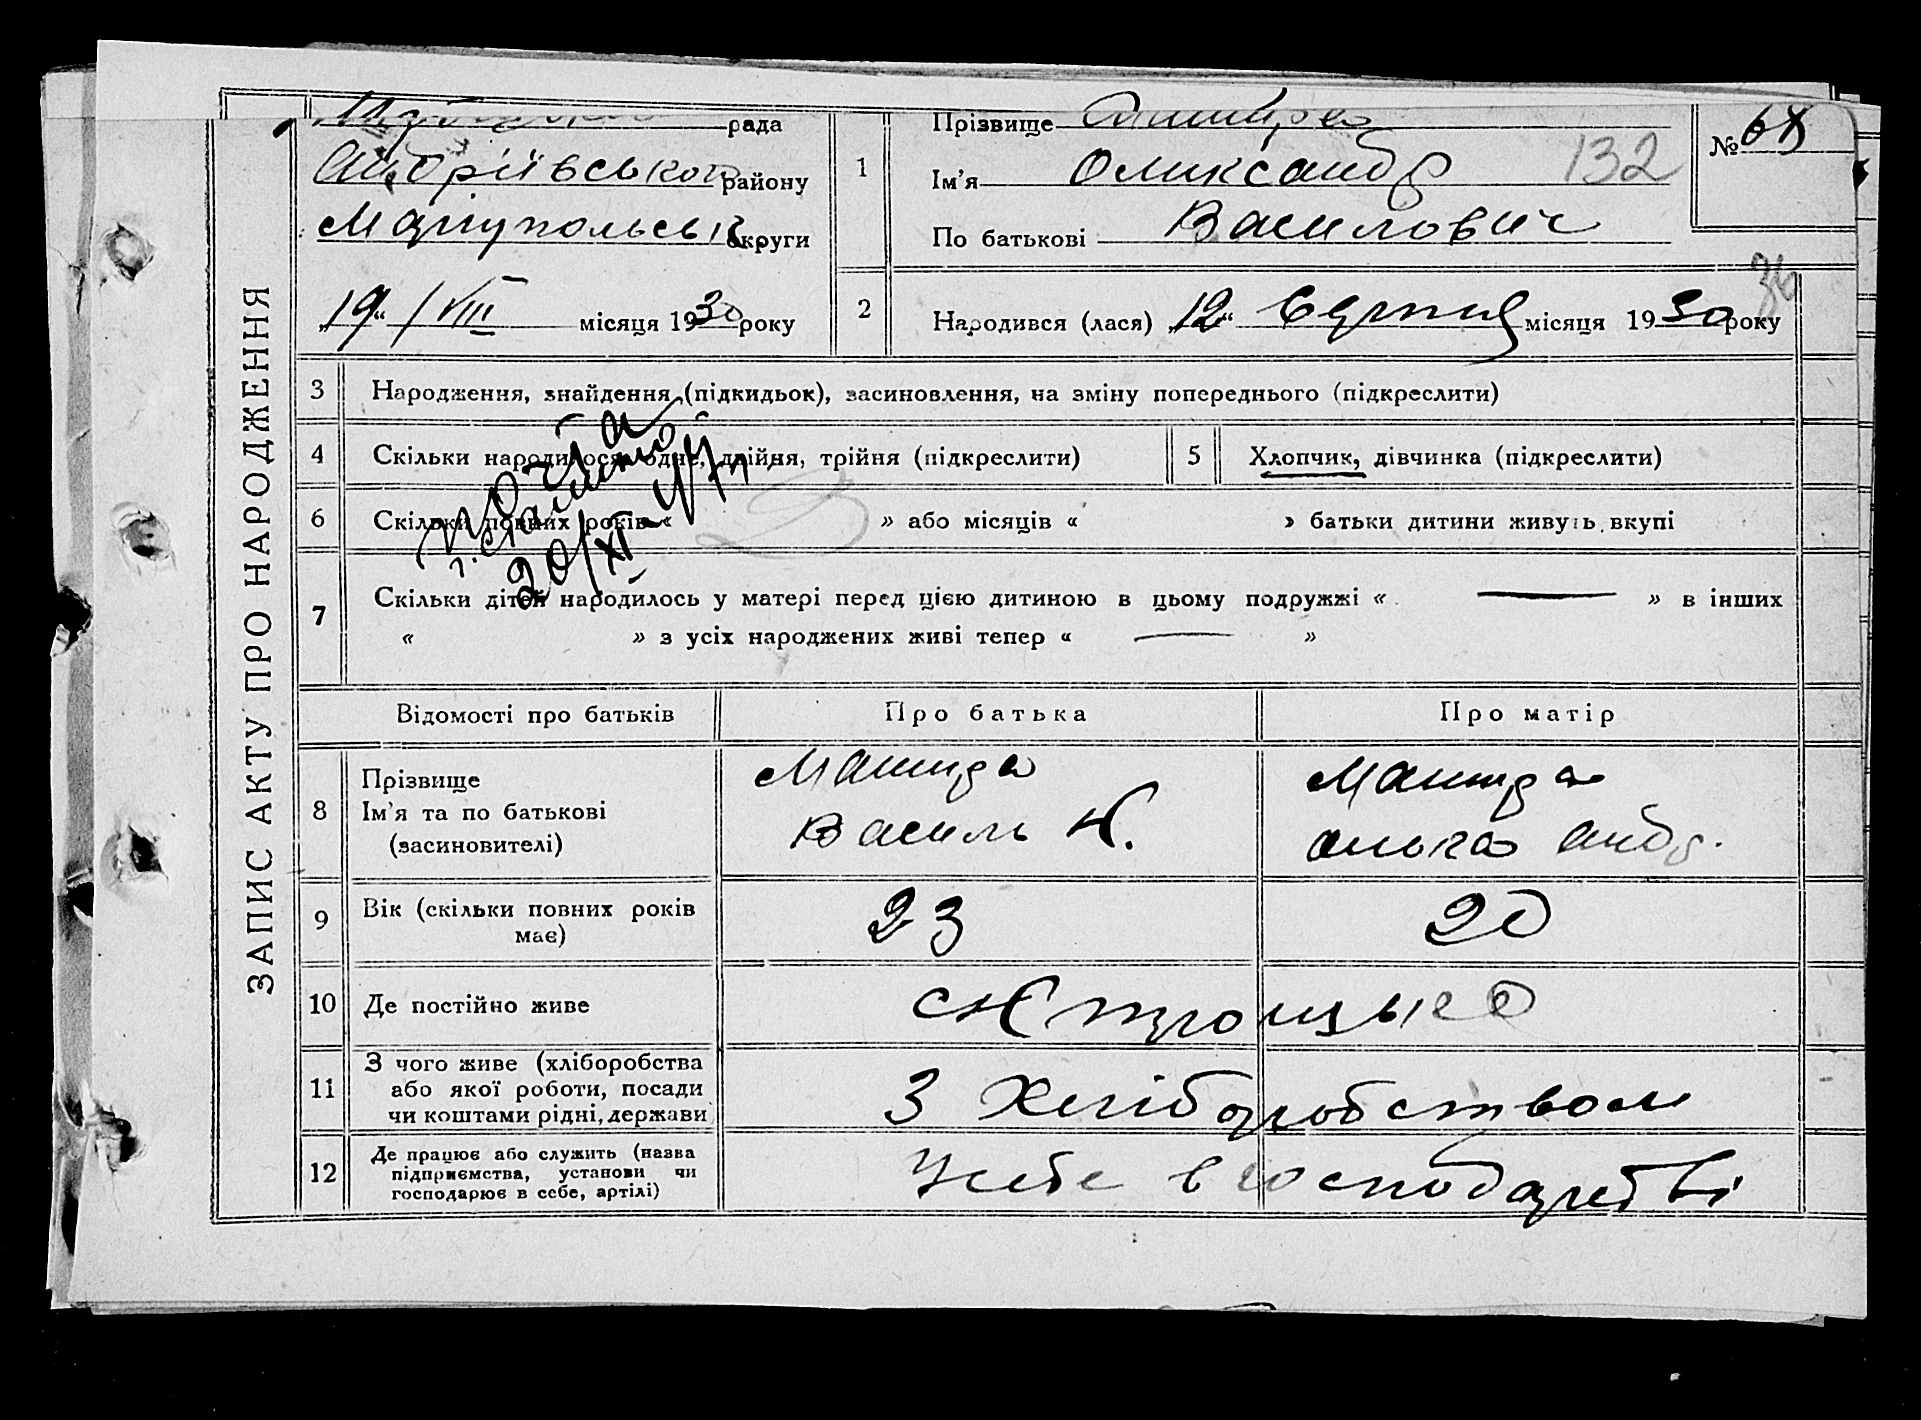 ЗАПИС АКТУ ПРО НАРОДЖЕННЯ
рада
Андріївського району
Маріупольськ округи
„19“ / VIII місяця 1930 року
1
Прізвище
Ім'я Олександр
132
По батькові Василович
№ 68
36
2
Народився (лася) „12“ Серпня місяця 1930 року
3
Народження, знайдення (підкидьок), засиновлення, на зміну попереднього (підкреслити)
4
Скільки народилося: одне, двійня, трійня (підкреслити)
5
Хлопчик, дівчинка (підкреслити)
20/XI
6
Скільки повних років « » або місяців « » батьки дитини живуть вкупі
7
Скільки дітей народилось у матері перед цією дитиною в цьому подружжі « — » в інших
« » з усіх народжених живі тепер « — »
Відомості про батьків
Про батька
Про матір
8
Прізвище
Ім'я та по батькові
(засиновителі)
Василь К.
Ольга Андр.
9
Вік (скільки повних років
має)
23
20
10
Де постійно живе
11
З чого живе (хліборобства
або якої роботи, посади
чи коштами рідні, держави
З Хліборобством
12
Де працює або служить (назва
підприємства, установи чи
господарює в себе, артілі)
У себе в господарстві